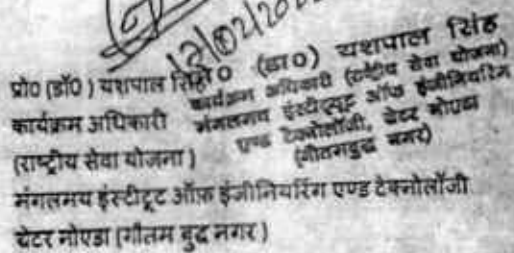 प्रो० (डॉ०) यशपाल सिंह
कार्यक्रम अधिकारी
(राष्ट्रीय सेवा योजना)
मंगलमय इंस्टीटूट ऑफ़ इंजीनियरिंग एण्ड टेक्नोलॉजी
ग्रेटर नोएडा (गौतम बुद्ध नगर)
(डा०) यशपाल सिंह
कार्यक्रम अधिकारी (राष्ट्रीय सेवा योजना)
मंगलमय इंस्टीट्यूट ऑफ इंजीनियरिंग
एण्ड टेक्नोलॉजी, ग्रेटर नोएडा
(गौतमबुद्ध नगर)